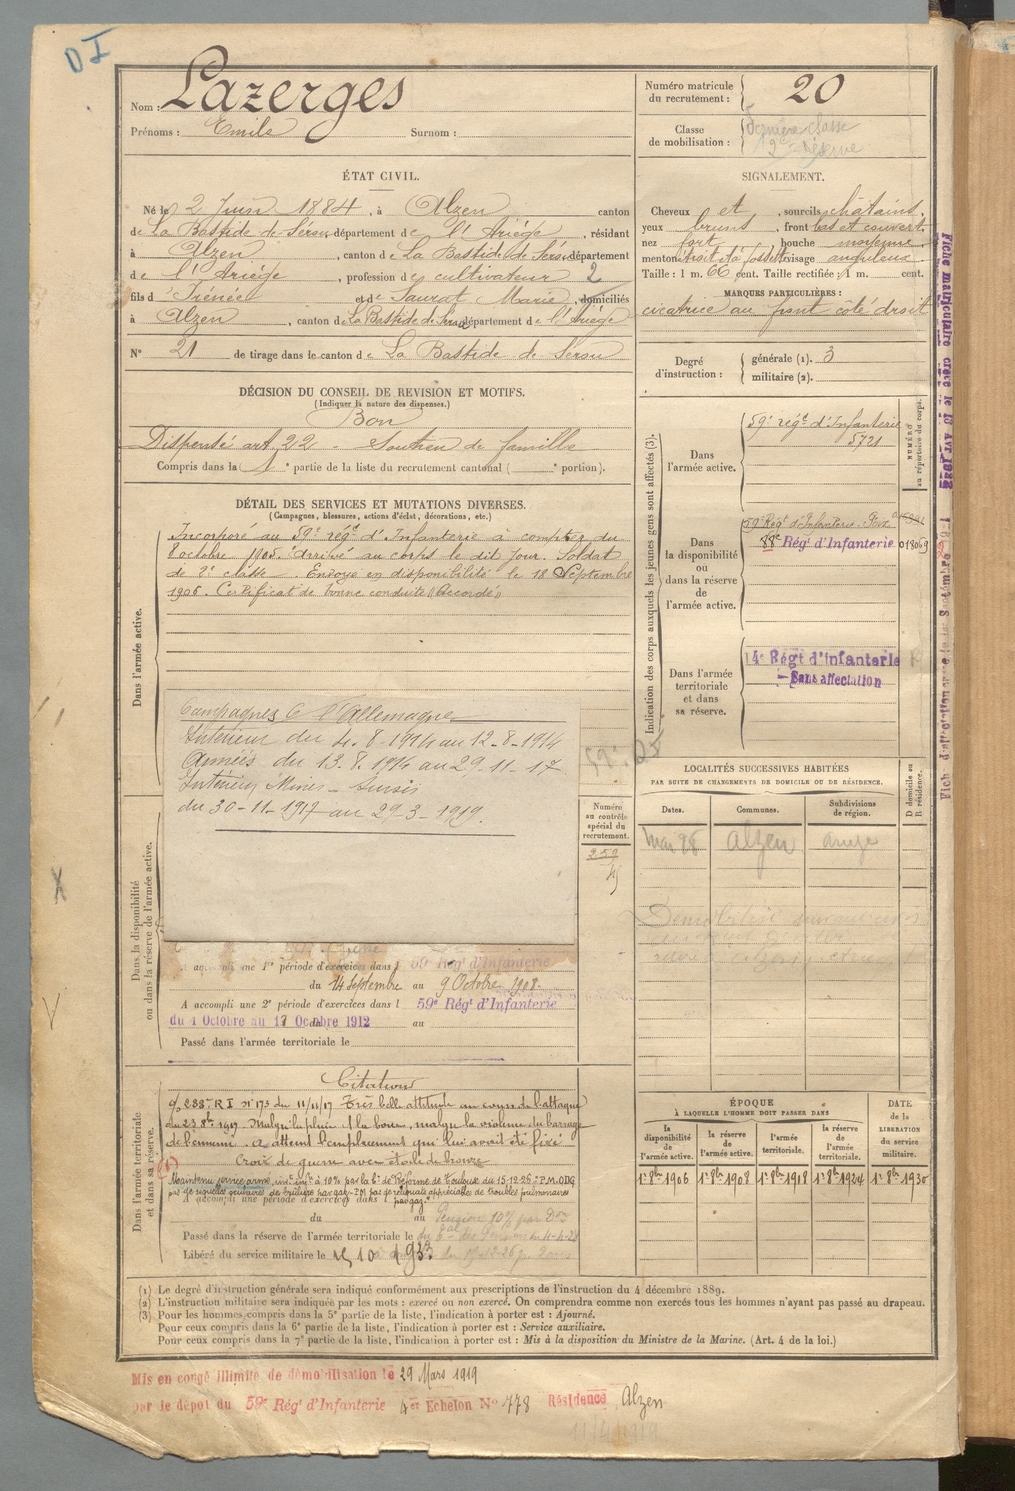 D I
Nom : Lazerges
Prénoms : Emile Surnom :
Numéro matricule du recrutement : 20
Classe de mobilisation : dernière classe
2e réserve
ÉTAT CIVIL.
Né le 2 Juin 1884, à Alzen canton
de La Bastide de Sérou, département de l'Ariège, résidant
à Alzen, canton de La Bastide de Sérou, département
de l'Ariège, profession de cultivateur 2
fils d'Irénée et de Saurat Marie, domiciliés
à Alzen, canton de La Bastide de Sérou, département de l'Ariège
N° 21 de tirage dans le canton de La Bastide de Sérou
SIGNALEMENT.
Cheveux et , sourcils châtains,
yeux bruns , front bas et couvert,
nez fort , bouche moyenne,
menton droit et à fossette visage anguleux.
Taille : 1 m. 66 cent. Taille rectifiée : 1 m. cent.
MARQUES PARTICULIÈRES :
cicatrice au front côté droit
Degré d'instruction :
générale (1). 3
militaire (2).
DÉCISION DU CONSEIL DE REVISION ET MOTIFS.
(Indiquer la nature des dispenses.)
Bon
Dispensé art. 22 - Soutien de famille
Compris dans la 1e partie de la liste du recrutement cantonal ( e portion).
DÉTAIL DES SERVICES ET MUTATIONS DIVERSES.
(Campagnes, blessures, actions d'éclat, décorations, etc.)
Dans l'armée active.
Incorporé au 59e régt d'Infanterie à compter du
8 octobre 1905. arrivé au corps le dit jour. Soldat
de 2e classe. Envoyé en disponibilité le 18 Septembre
1906. Certificat de bonne conduite "Accordé"
Campagnes C l'Allemagne
Intérieur du 4.8.1914 au 12-8-1914
Armées du 13.8.1914 au 29-11-17
Intérieur Mines
du 30-11-1917 au 29-3-1919.
Dans la disponibilité
ou dans la réserve de l'armée active.
Numéro
au contrôle
spécial du
recrutement.
A accompli une 1re période d'exercices dans l 59e Régt d'Infanterie
du 14 Septembre au 9 Octobre 1908.
A accompli une 2e période d'exercices dans l 59e Régt d'Infanterie
du 1 Octobre au 17 Octobre 1912 au
Passé dans l'armée territoriale le
Dans l'armée territoriale
et dans sa réserve.
Citation
288e R I n° 173 du 11/11/17 Très belle attitude au cours de l'attaque
du 23 8bre 1917. Malgré la pluie et la boue, malgré la violence du barrage
de l'ennemi. a atteint l'emplacement qui lui avait été fixé
Croix de guerre avec étoile de bronze
Maintenu service armé, inv. inf. à 10% par la Con de Réforme de Toulouse du 15-12-26 : P.M. ODG
A accompli une période d'exercices dans l
du au
Pension 10%
Passé dans la réserve de l'armée territoriale le
Libéré du service militaire le 15 10 1933
Indication des corps auxquels les jeunes gens sont affectés (3).
NUMÉRO
au répertoire du corps.
Dans
l'armée active.
59e régt d'Infanterie
5721
Dans
la disponibilité
ou
dans la réserve
de
l'armée active.
59 Régt d'Infanterie
88e Régt d'Infanterie 018069
Dans l'armée
territoriale
et dans
sa réserve.
14e Régt d'Infanterie
Sans affectation
LOCALITÉS SUCCESSIVES HABITÉES
PAR SUITE DE CHANGEMENTS DE DOMICILE OU DE RÉSIDENCE.
D domicile ou
R résidence.
Dates. Communes. Subdivisions
de région.
Alzen
ÉPOQUE
À LAQUELLE L'HOMME DOIT PASSER DANS
la disponibilité de l'armée active.
la réserve de l'armée active.
l'armée territoriale.
la réserve de l'armée territoriale.
DATE de la LIBÉRATION du service militaire.
1er 8bre 1906 1er 8bre 1908 1er 8bre 1918 1er 8bre 1924 1er 8bre 1930
(1) Le degré d'instruction générale sera indiqué conformément aux prescriptions de l'instruction du 4 décembre 1889.
(2) L'instruction militaire sera indiquée par les mots : exercé ou non exercé. On comprendra comme non exercés tous les hommes n'ayant pas passé au drapeau.
(3) Pour les hommes compris dans la 5e partie de la liste, l'indication à porter est : Ajourné.
Pour ceux compris dans la 6e partie de la liste, l'indication à porter est : Service auxiliaire.
Pour ceux compris dans la 7e partie de la liste, l'indication à porter est : Mis à la disposition du Ministre de la Marine. (Art. 4 de la loi.)
Mis en congé illimité de démobilisation le 29 Mars 1919
par le dépôt du 59e Régt d'Infanterie 4e Echelon N° 778 Résidence Alzen